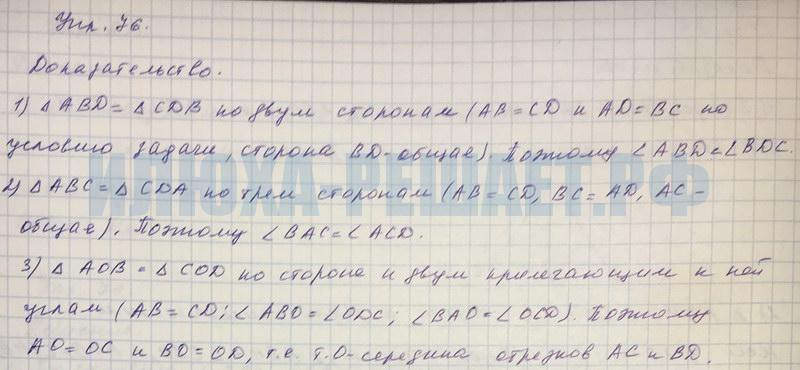 Упр. 76.
Доказательство.
1) △ ABD = △ CDB по двум сторонам (AB = CD и AD = BC по
условию задачи, сторона BD - общая). Поэтому ∠ ABD = ∠ BDC.
ИЛЮХА-РЕШАЕТ.РФ
2) △ ABC = △ CDA по трем сторонам (AB = CD, BC = AD, AC -
общая). Поэтому ∠ BAC = ∠ ACD.
3) △ AOB = △ COD по стороне и двум прилегающим к ней
углам (AB = CD; ∠ ABO = ∠ ODC; ∠ BAO = ∠ OCD). Поэтому
AO = OC и BO = OD, т.е. т.O - середина отрезков AC и BD.